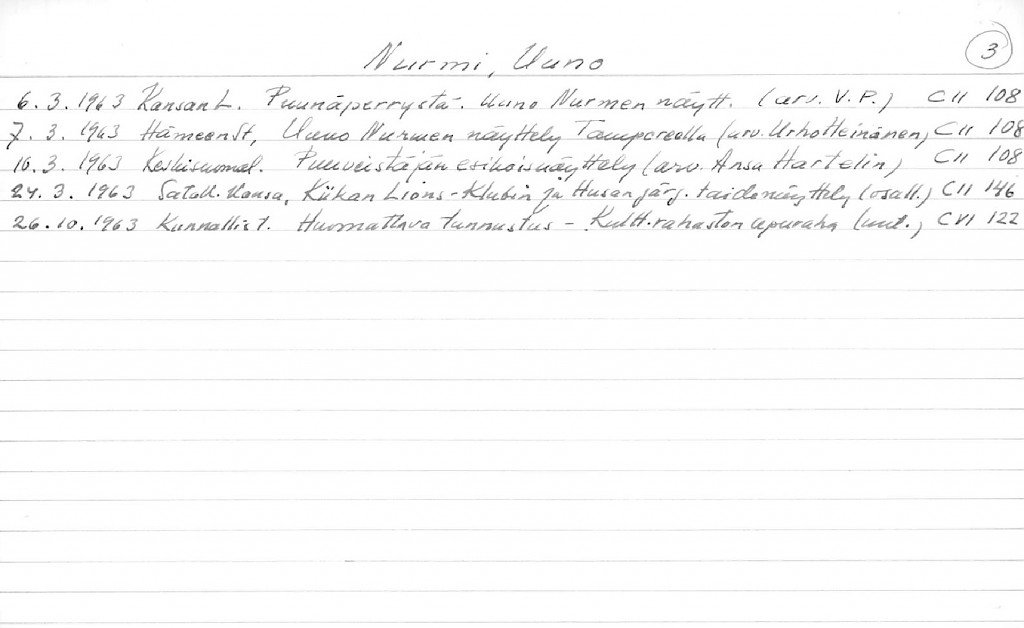 Nurmi, Uuno
3
6.3.1963 Kansan L. Puunäperrystä. Uuno Nurmen näytt. (arv. V.P.) CII 108
7.3.1963 HämeenSt, Uuno Nurmen näyttely Tampereella (arv. Urho Heinänen) CII 108
10.3.1963 Keskisuomal. Puuveistäjän esikoisnäyttely (arv. Ansa Hartelin) CII 108
24.3.1963 Satak. Kansa, Kiikan Lions-Klubin ja Husan järj. taidenäyttely (osall.) CII 146
26.10.1963 Kunnallist. Huomattava tunnustus - Kultt.rahaston apuraha (uut.) CVI 122